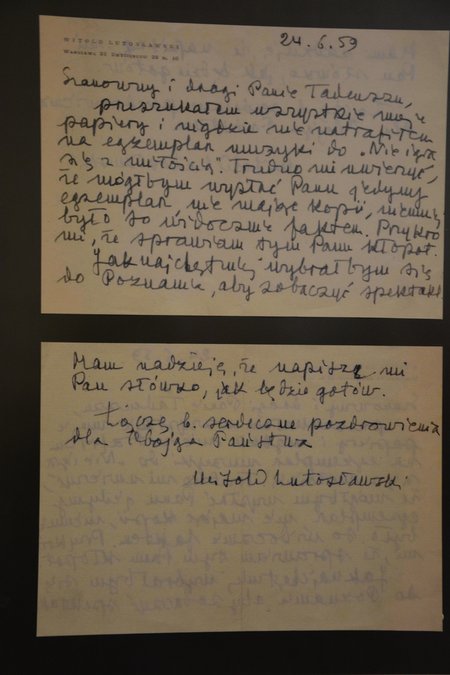 WITOLD LUTOSŁAWSKI
24.6.59
Szanowny i drogi Panie Tadeuszu,
przeszukałem wszystkie moje
papiery i nigdzie nie natrafiłem
na egzemplarz muzyki do „Nie igra
się z miłością". Trudno mi uwierzyć,
że mógłbym wysłać Panu jedyny
egzemplarz nie mając kopii, niemniej
było to widocznie faktem. Przykro
mi, że sprawiam tym Panu kłopot.
Jak najchętniej wybrałbym się
do Poznania, aby zobaczyć spektakl.
Mam nadzieję, że napisze mi
Pan słówko, jak będzie gotów.
Łączę b. serdeczne pozdrowienia
dla Obojga Państwa
Witold Lutosławski